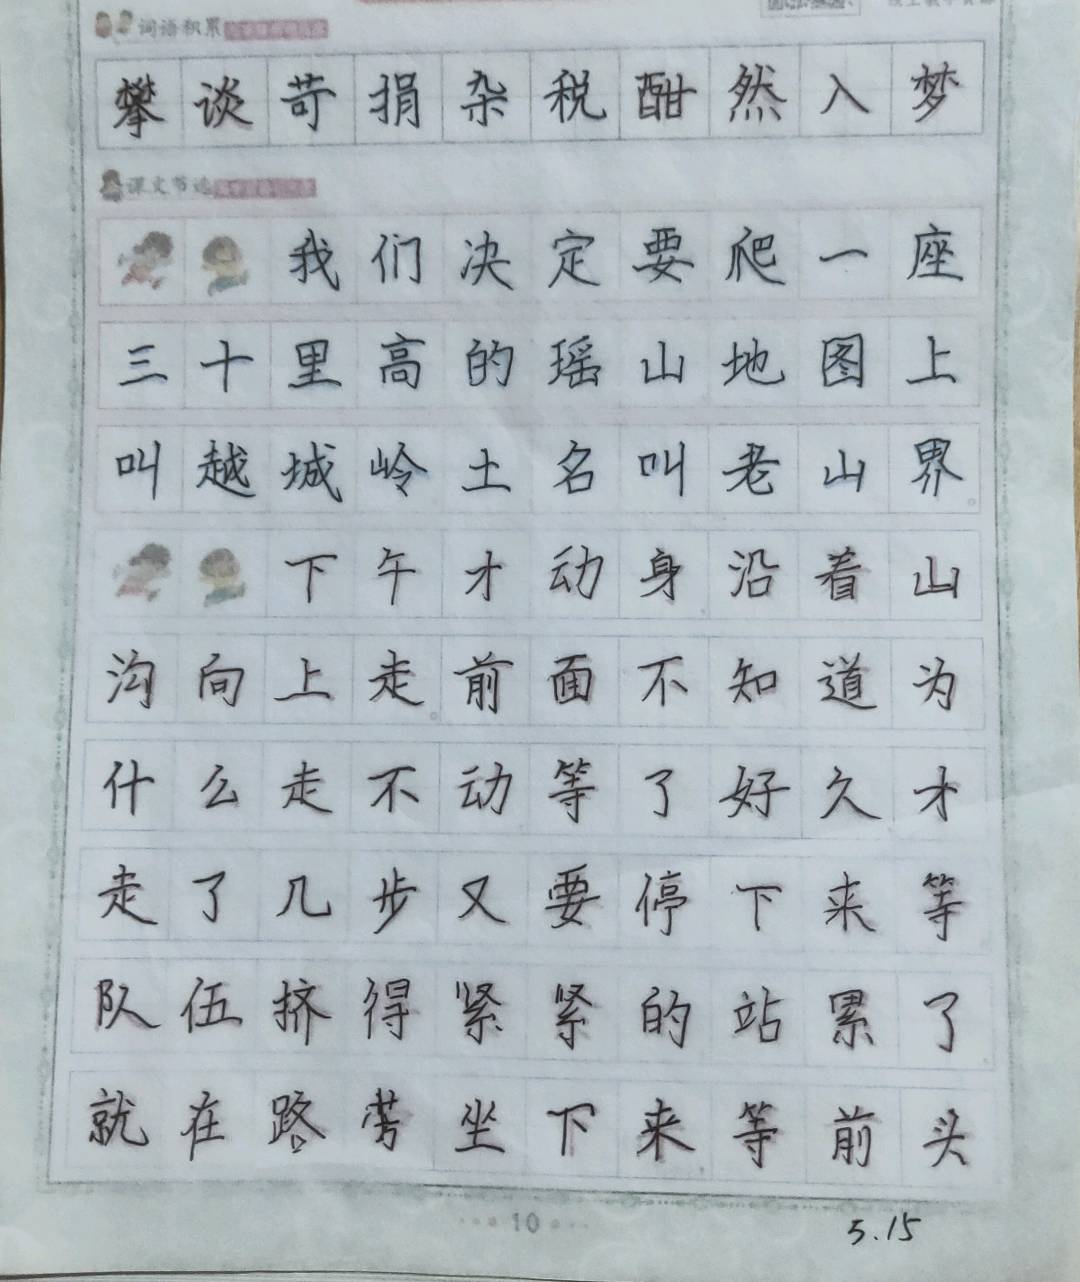 词语积累
攀谈苛捐杂税酣然入梦
课文节选
我们决定要爬一座
三十里高的瑶山地图上
叫越城岭土名叫老山界。
下午才动身沿着山
沟向上走。前面不知道为
什么走不动等了好久才
走了几步又要停下来等
队伍挤得紧紧的站累了
就在路旁坐下来等前头
10
5.15